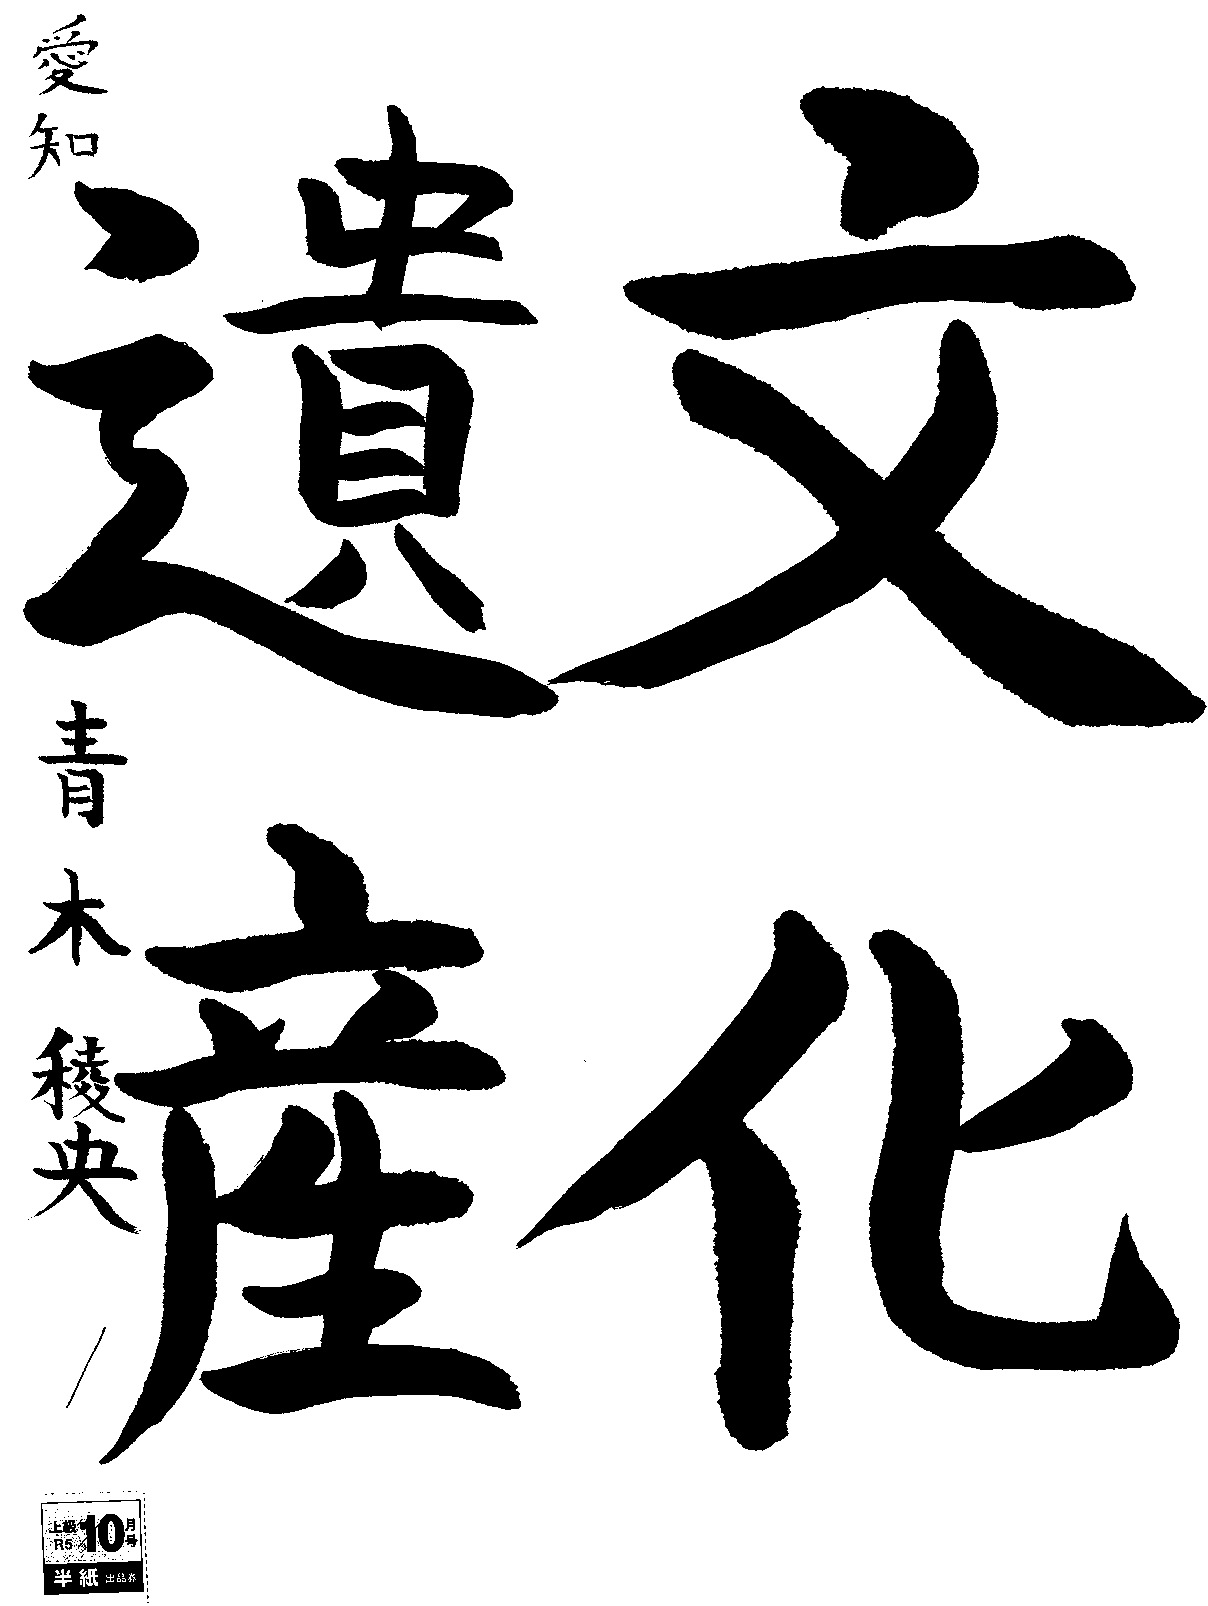 文化
遺産
愛知 青木 稜央
上級 R5 10月号
半紙 出品券